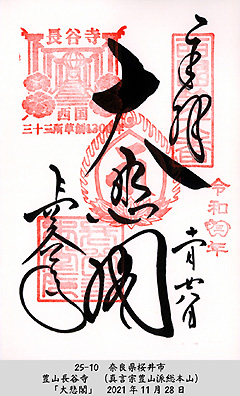 奉拝
長谷寺
西国
三十三所草創1300年
大悲閣
令和
年
十一月廿八日
25-10 奈良県桜井市
豊山長谷寺 (真言宗豊山派総本山)
「大悲閣」 2021年11月28日